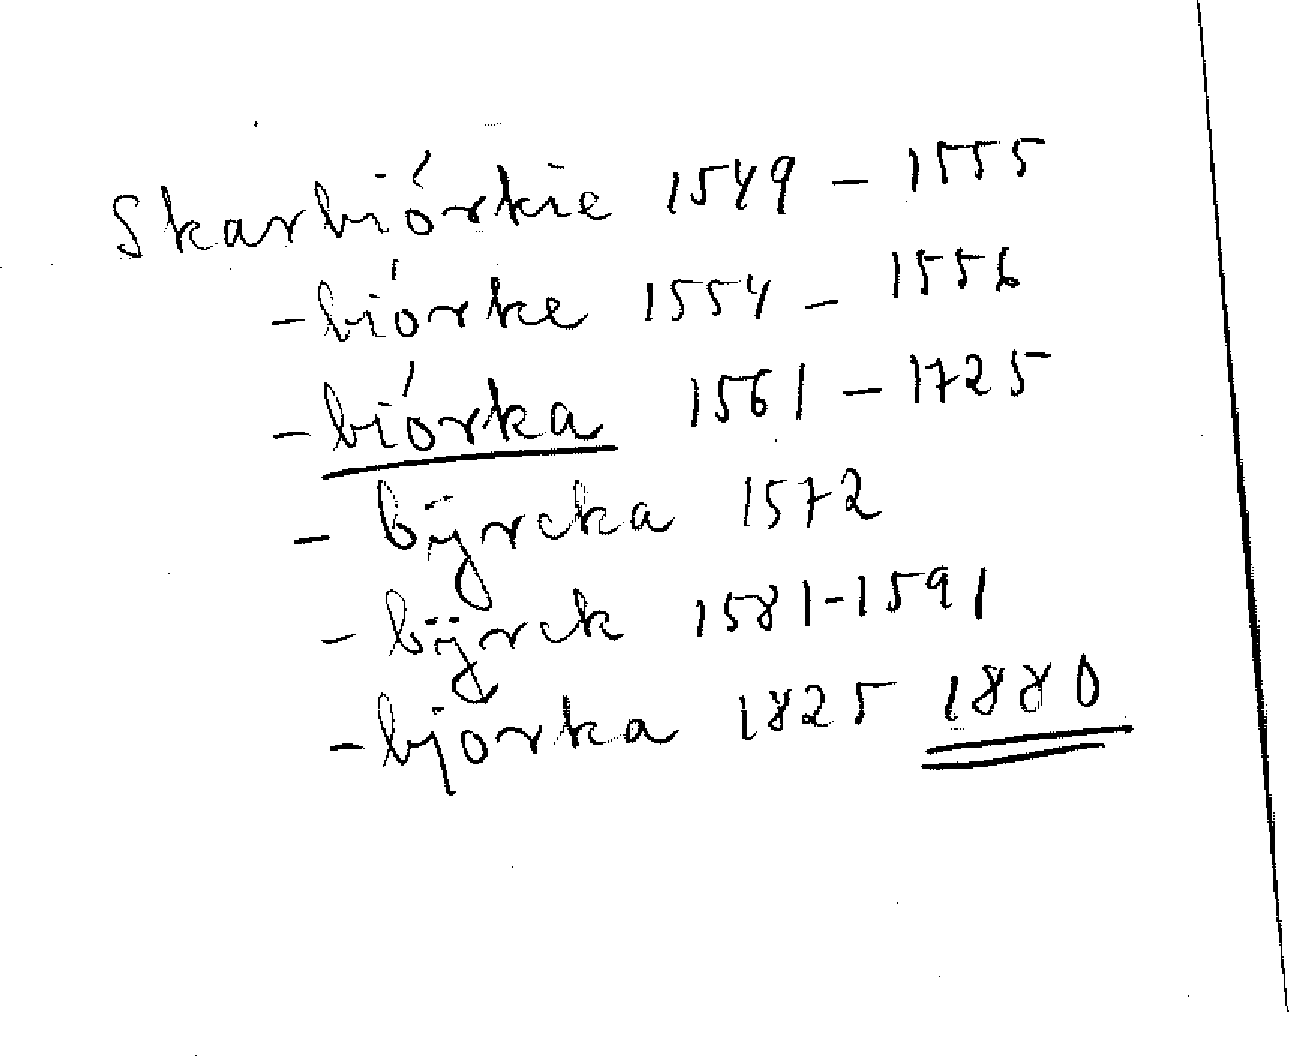 Skarbiórkie 1549 – 1555
- biórke 1554 – 1556
- biórka 1561 – 1725
- bÿrcka 1572
- bÿrck 1581-1591
- bjorka 1825 1880